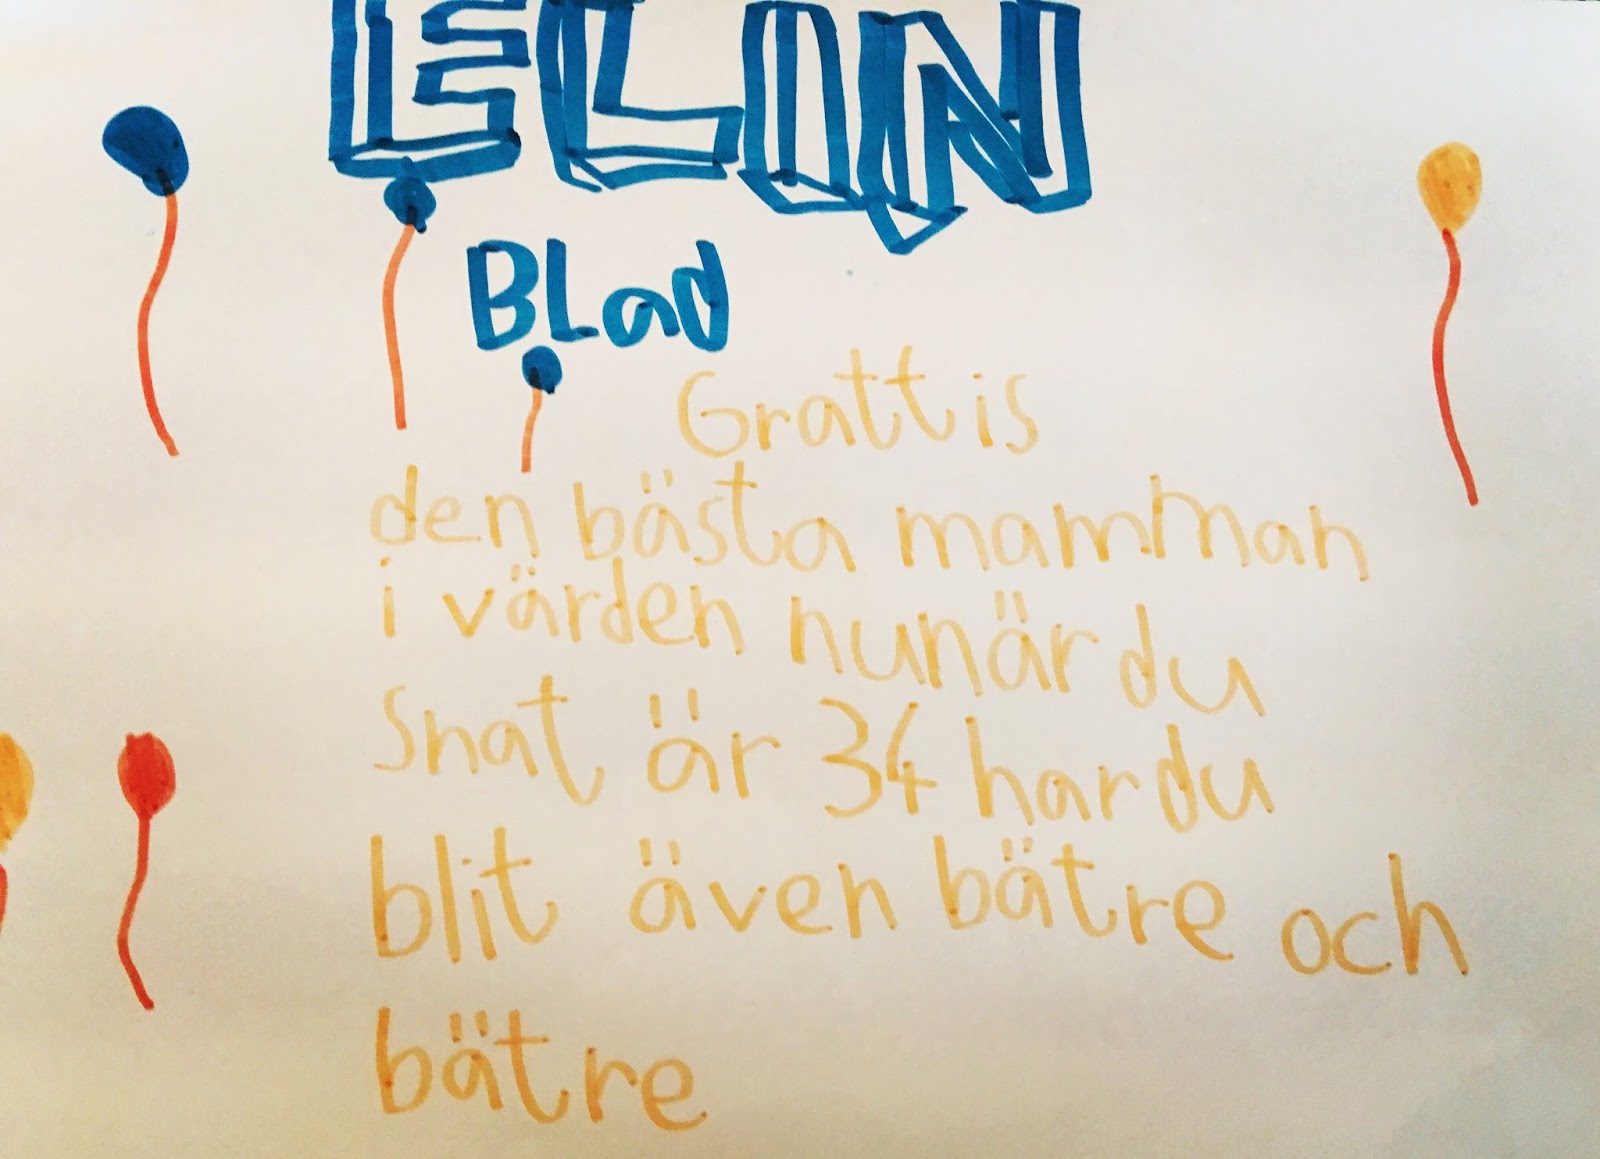 ELIN
BLad
Grattis
den bästa mamman
i värden nunär du
Snat är 34 hardu
blit även bätre och
bätre